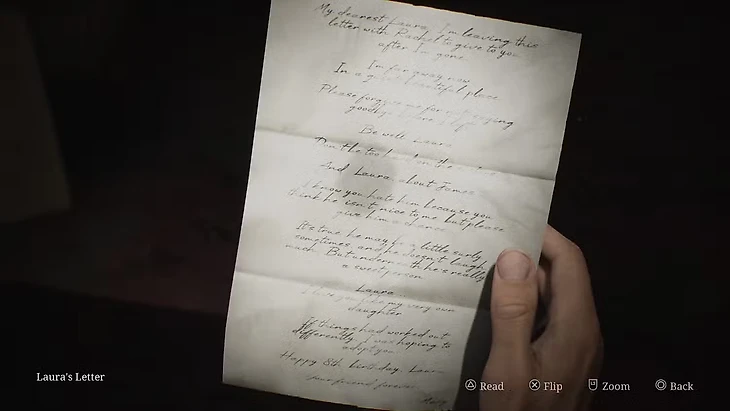 My dearest Laura, I'm leaving this
letter with Rachel to give to you
after I'm gone.
I'm far away now.
In a beautiful place.
Please forgive me for
goodbye
Be well, Laura
Don't be too hard on the
And Laura, about James
I know you hate him because you
think he isn't nice to me, but please
give him a chance.
It's true he may be a little surly
sometimes, and he doesn't laugh
much. But underneath he's really
a sweet person.
Laura...
I love you like my very own
daughter.
If things had worked out
differently, I was hoping to
adopt you.
Happy 8th birthday, Laura
Your friend forever
Laura's Letter
Read
Flip
Zoom
Back